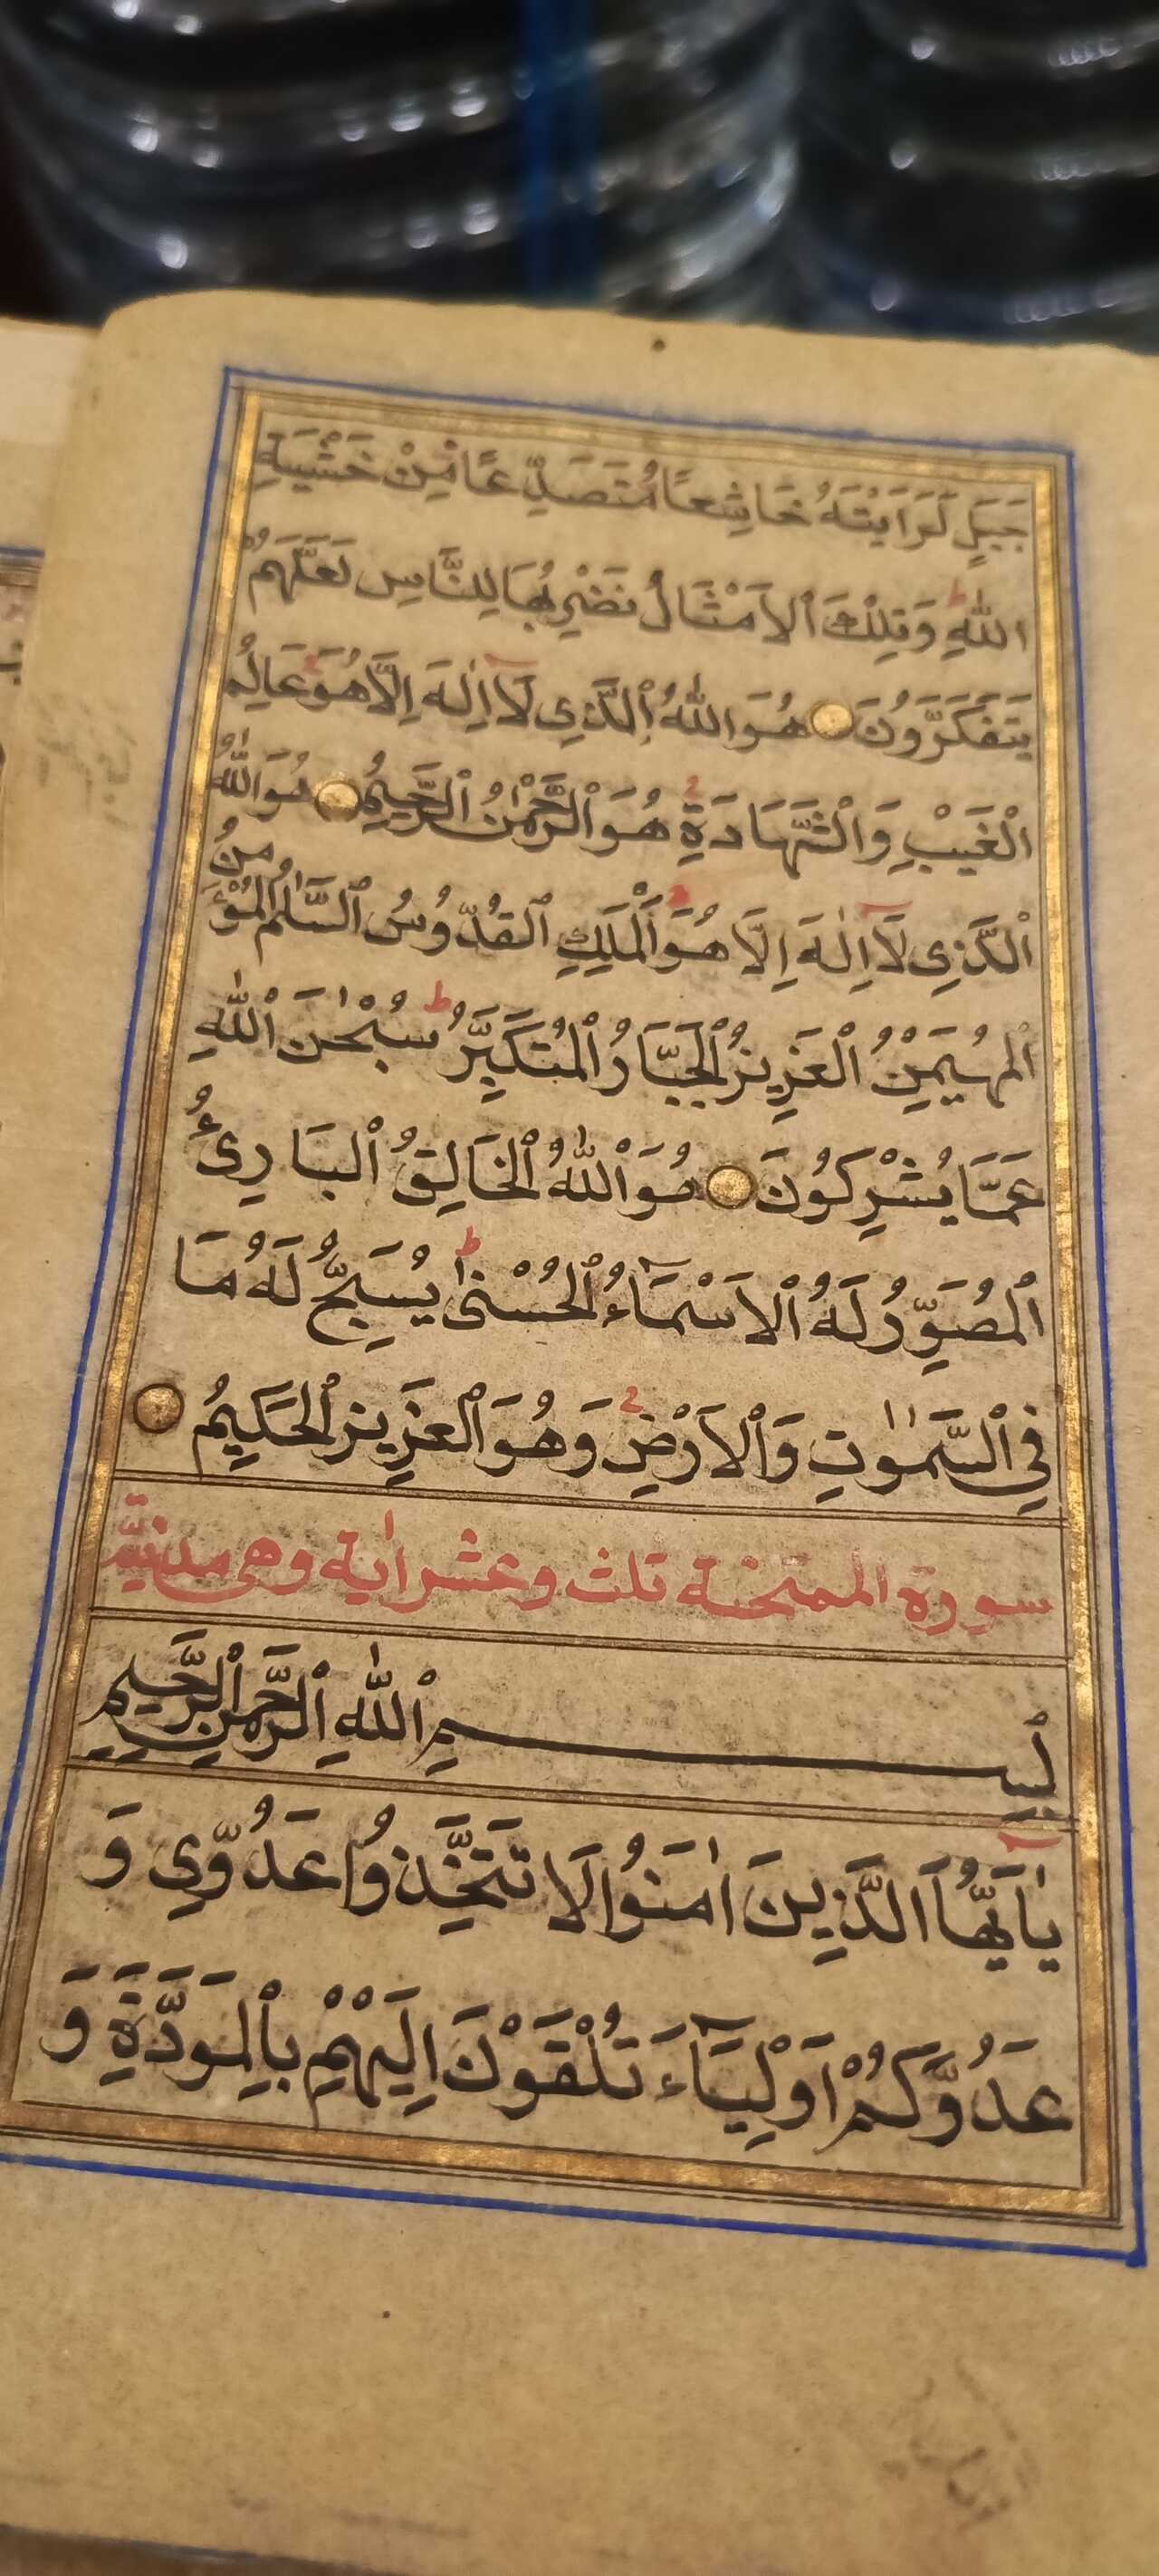 جَبَلٍ لَرَاَيْتَهُ خَاشِعًا مُتَصَدِّعًا مِنْ خَشْيَةِ
اللّٰهِ وَتِلْكَ الْاَمْثَالُ نَضْرِبُهَا لِلنَّاسِ لَعَلَّهُمْ
يَتَفَكَّرُونَ هُوَ اللّٰهُ الَّذِى لَآ اِلٰهَ اِلَّا هُوَ عَالِمُ
الْغَيْبِ وَالْشَّهَادَةِ هُوَ الْرَّحْمٰنُ الْرَّحِيمُ هُوَ اللّٰهُ
الْلَّذِى لَآ اِلٰهَ اِلَّا هُوَ اَلْمَلِكِ الْقُدُّوسُ الْسَّلٰمُ الْمُؤْمِنُ
الْمُهَيْمِنُ الْعَزِيزُ الْجَبَّارُ الْمُتَكَبِّرُ ط سُبْحٰنَ اللّٰهِ
عَمَّا يُشْرِكُونَ هُوَ اللّٰهُ الْخَالِقُ الْبَارِئُ
الْمُصَوِّرُ لَهُ الْاَسْمَآءُ الْحُسْنٰى ط يُسَبِّحُ لَهُ مَا
فِي الْسَّمٰوٰتِ وَالْاَرْضِ وَهُوَ الْعَزِيزُ الْحَكِيمُ
سورة الممتحنة ثلث وعشر اٰية وهى مدنيّة
بِسْمِ اللّٰهِ الْرَّحْمٰنِ الْرَّحِيمِ
يٰٓاَيُّهَا الَّذِينَ اٰمَنُوا لَا تَتَّخِذُوا عَدُوِّى وَ
عَدُوَّكُمْ اَوْلِيَآءَ تُلْقُوْنَ اِلَيْهِمْ بِالْمَوَدَّةِ وَ